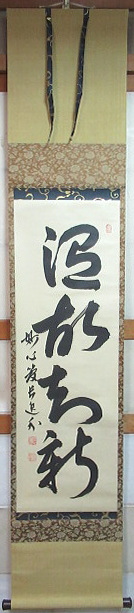 温故知新
妙心